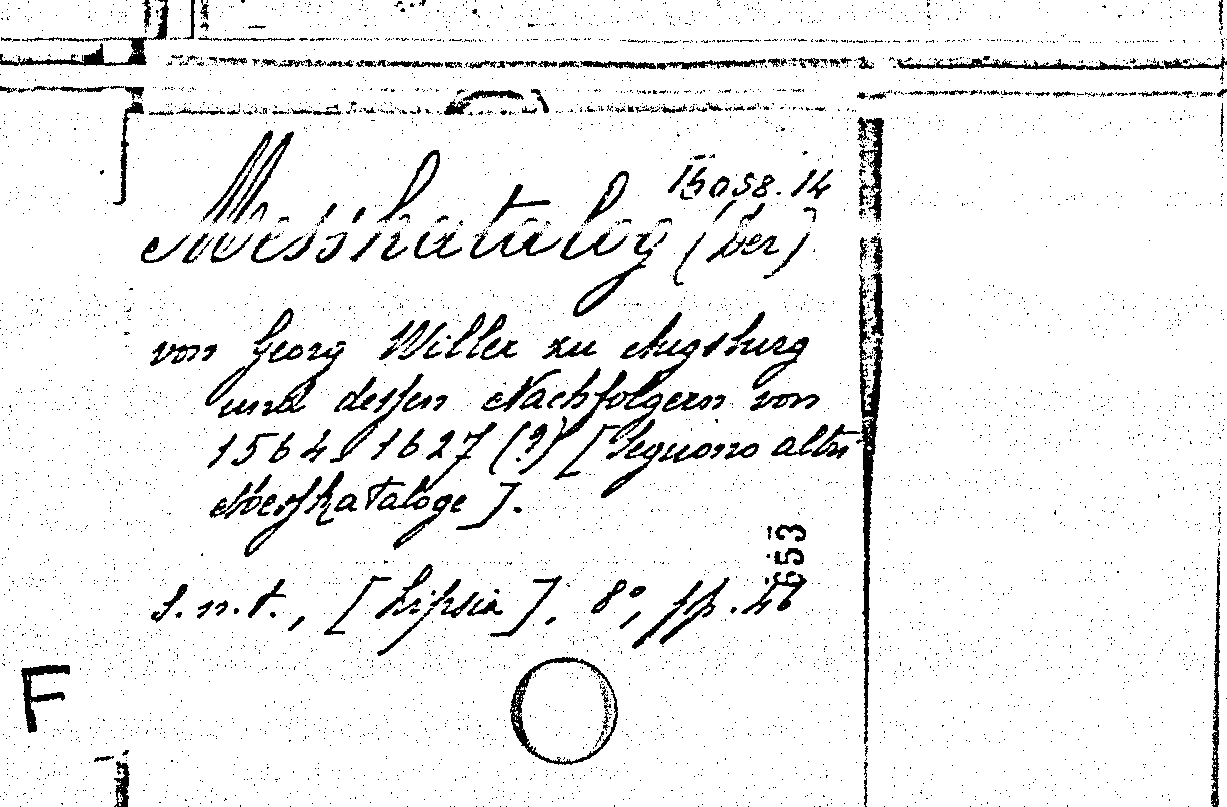 15058.14
Messkatalog (Der)
von Georg Willer zu Augsburg
und dessen Nachfolgern von
1564 1627 (?) [Seguono altri
Messkataloge].
653
S.n.t., [Lipsia], 8°, pp. 46
F